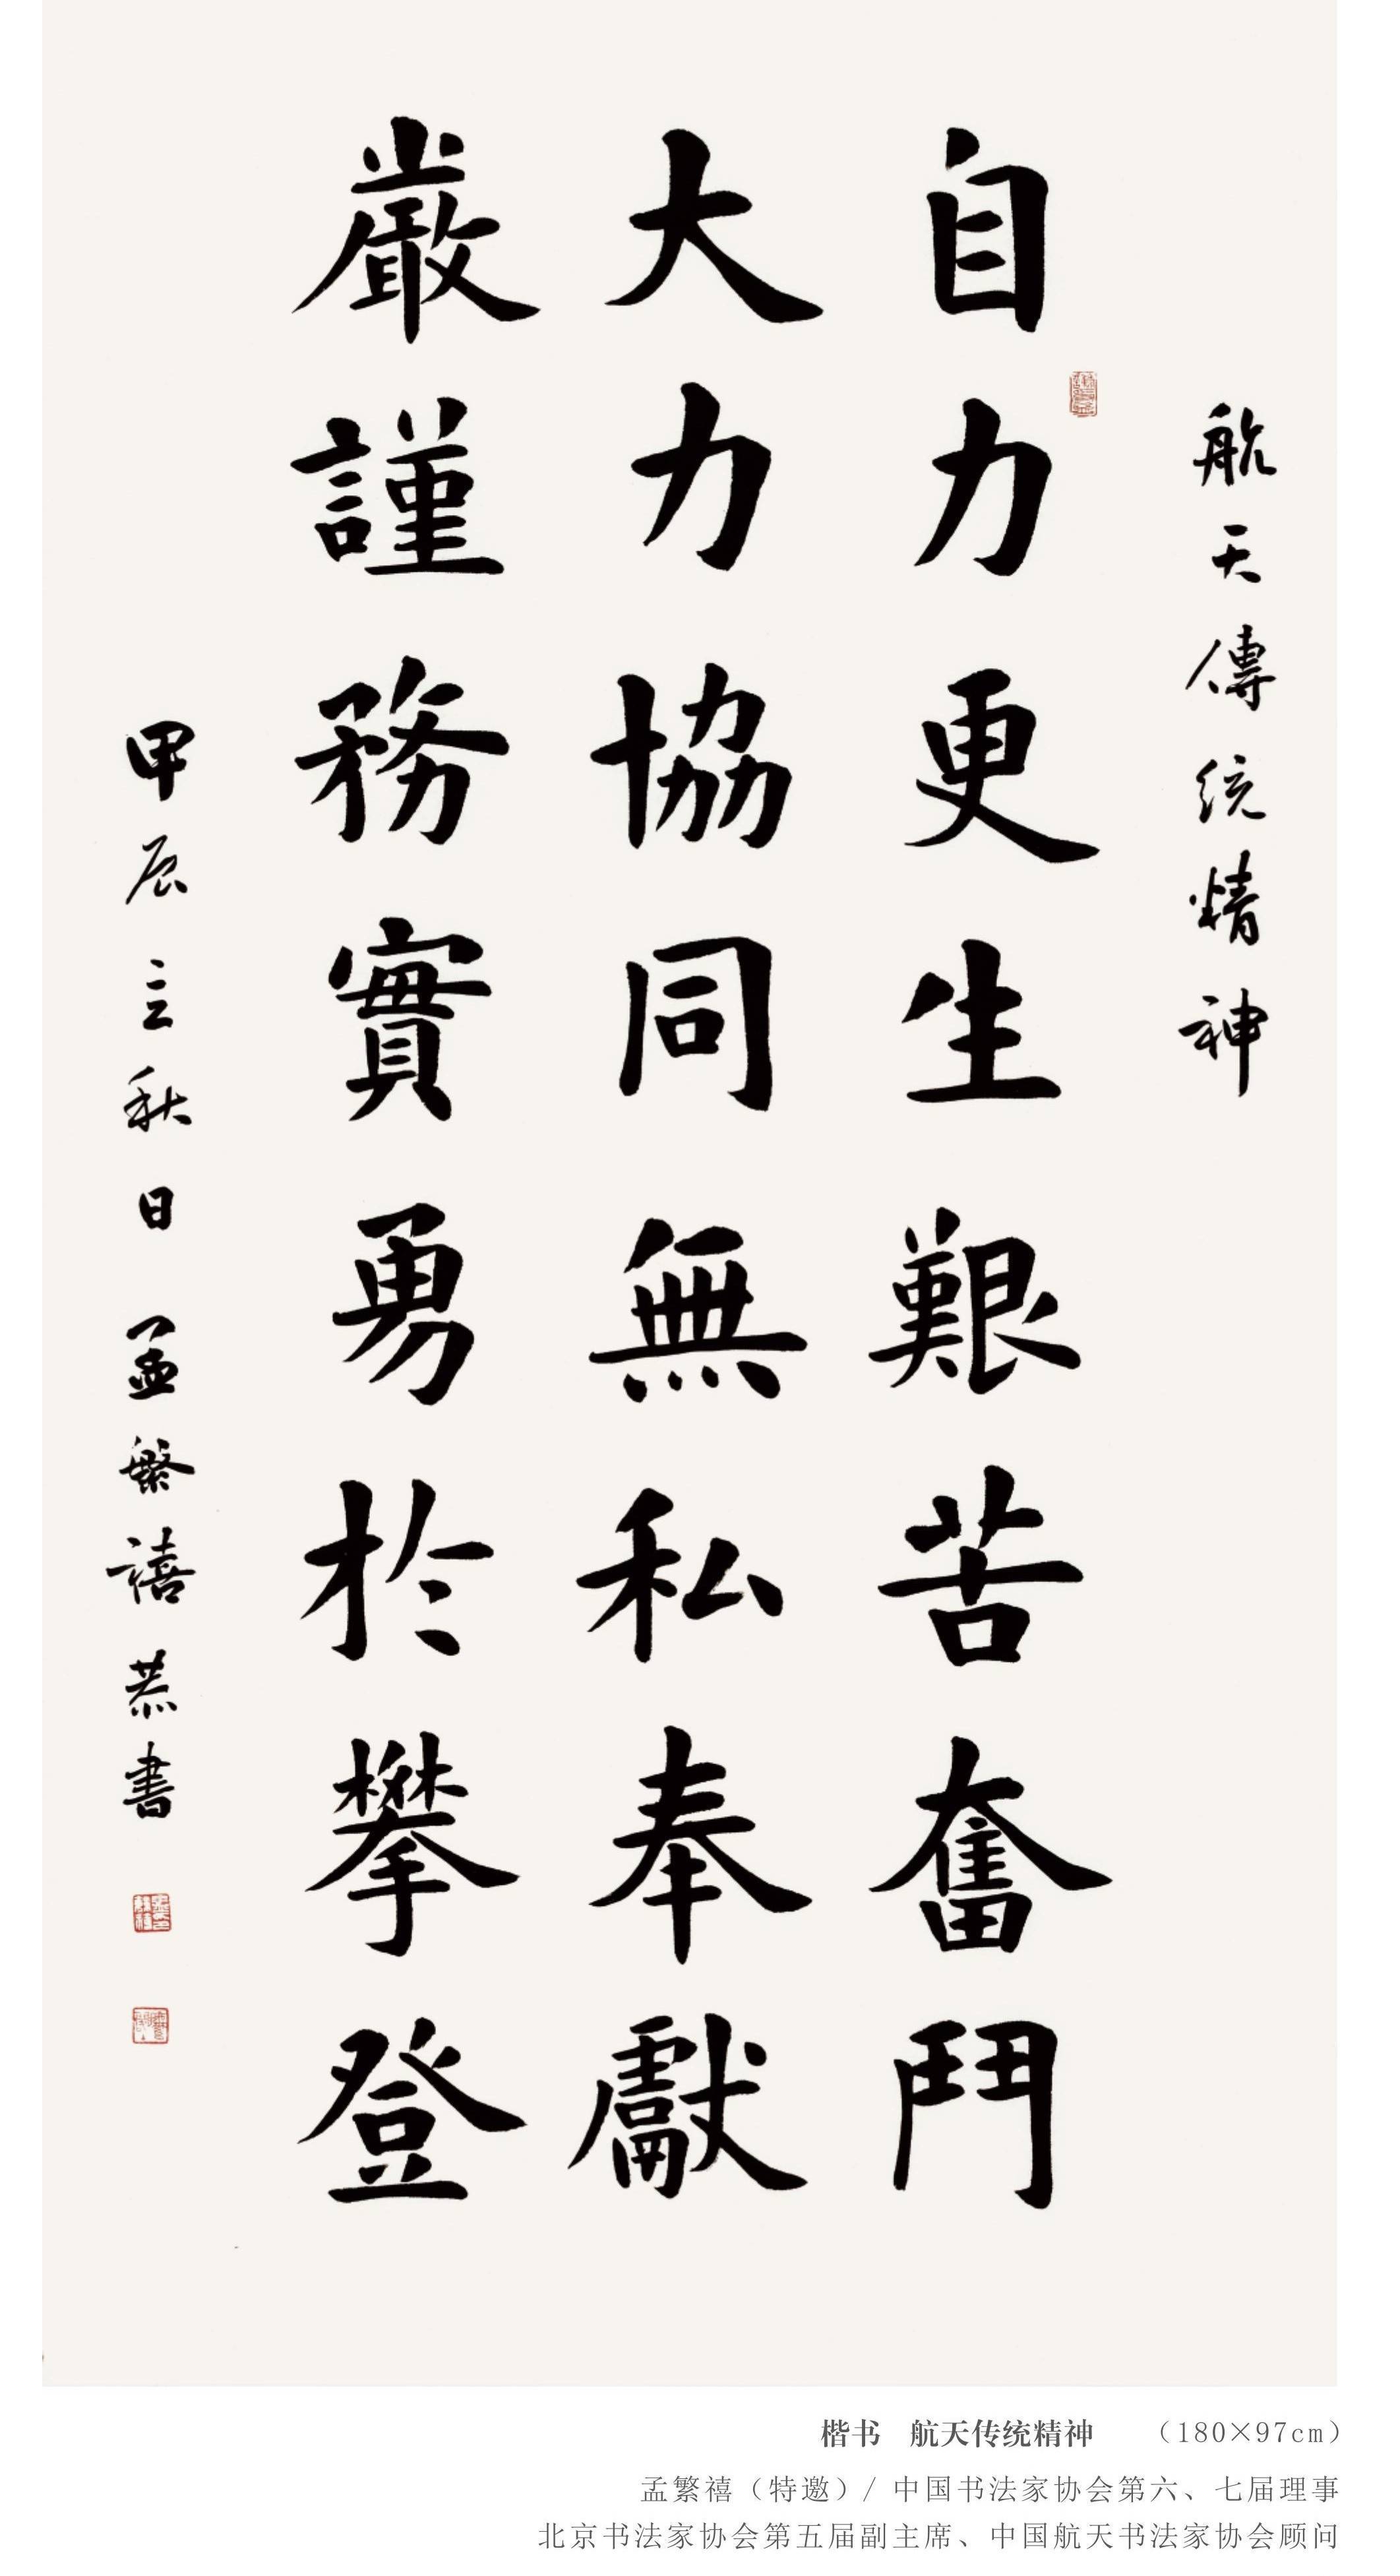 航天傳统精神
自力更生艱苦奮鬥
大力協同無私奉獻
嚴謹務實勇於攀登
甲辰立秋日孟繁禧恭書
楷书 航天传统精神 （180×97cm）
孟繁禧（特邀）/ 中国书法家协会第六、七届理事
北京书法家协会第五届副主席、中国航天书法家协会顾问